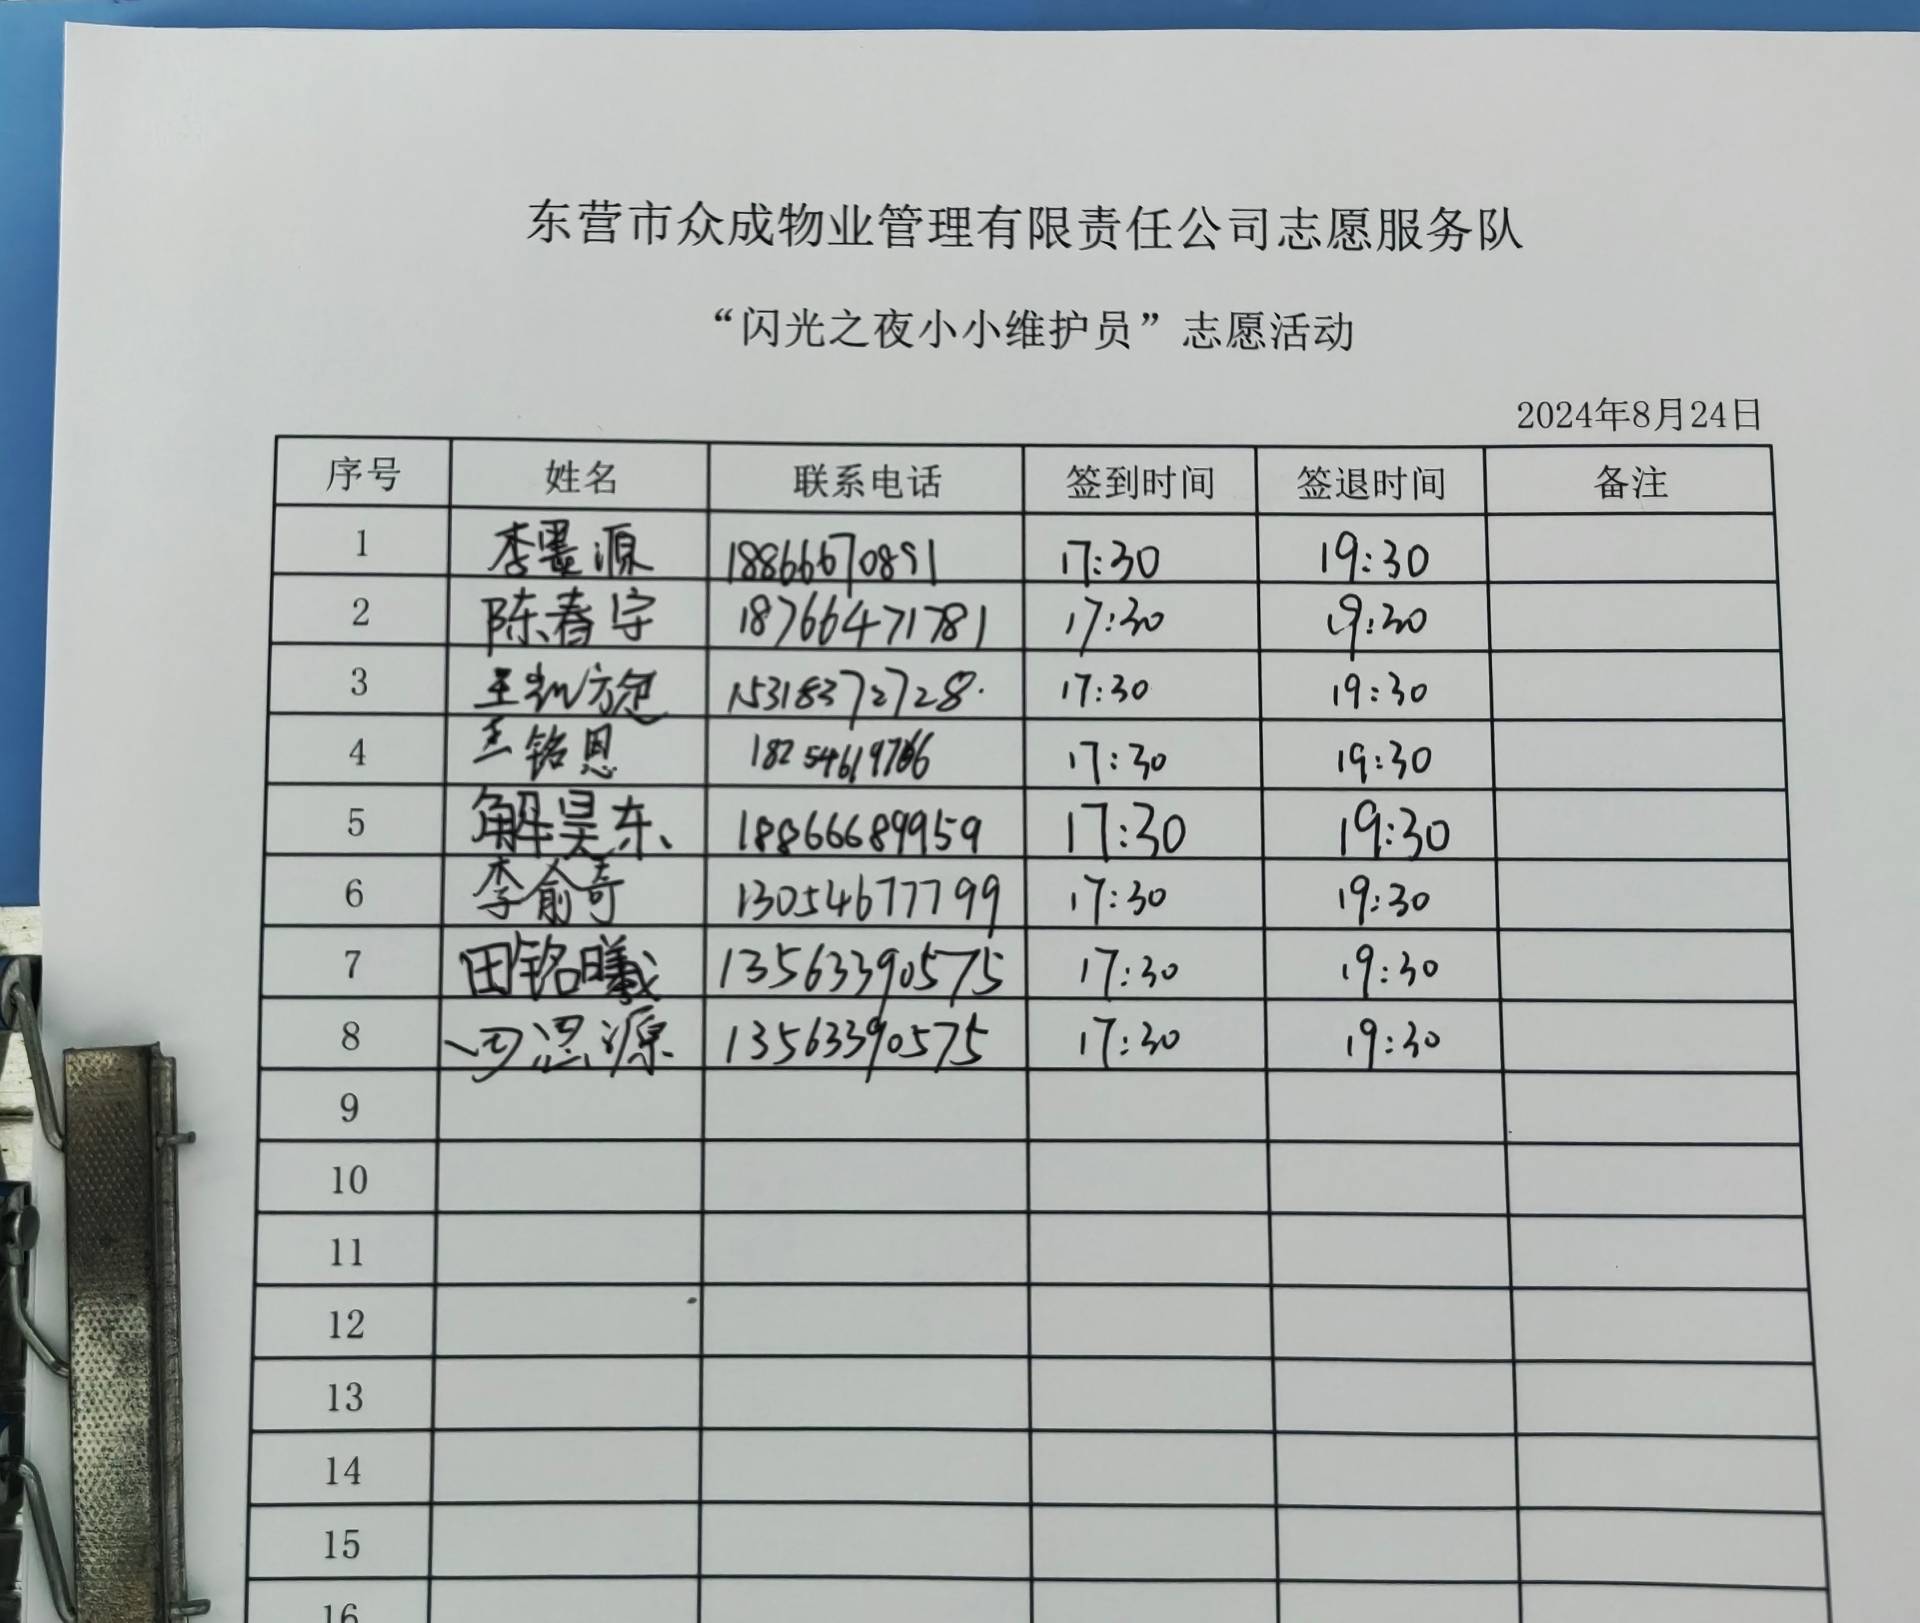 东营市众成物业管理有限责任公司志愿服务队
“闪光之夜小小维护员”志愿活动
2024年8月24日
序号 姓名 联系电话 签到时间 签退时间 备注
1 李墨源 18866670891 17:30 19:30
2 陈春宇 18766471781 17:30 19:30
3 王 15318372728. 17:30 19:30
4 王铭恩 18254619766 17:30 19:30
5 解昊东 18866689959 17:30 19:30
6 李俞奇 13054677799 17:30 19:30
7 田铭曦 13563390575 17:30 19:30
8 源 13563390575 17:30 19:30
9
10
11
12
13
14
15
16